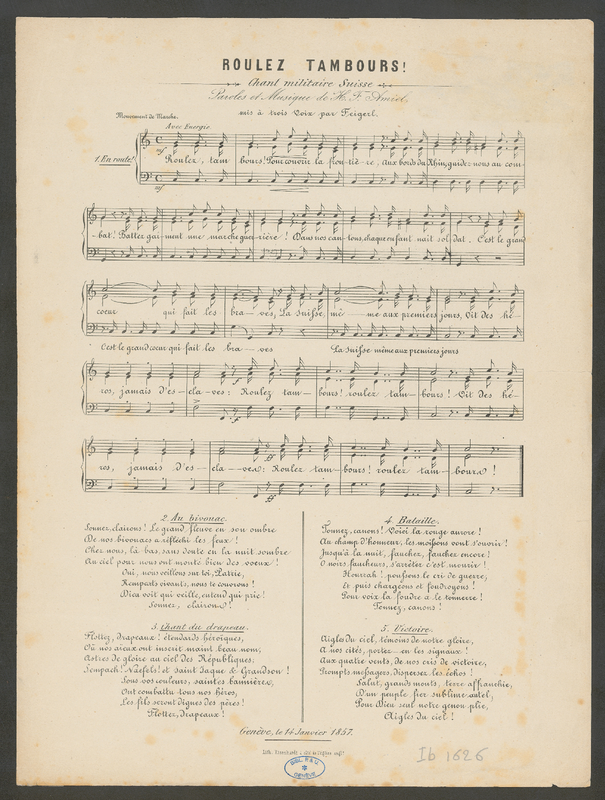 ROULEZ TAMBOURS!
Chant militaire Suisse
Paroles et Musique de H. F. Amiel,
mis à trois Voix par Feigerl.
Mouvement de Marche.
Avec Energie.
1. En route!
mf
Roulez, tam bours! Pour couvrir la fron-tiè-re, Aux bords du Rhin, guidez-nous au com-
mf
bat! Battez gai-ment une marche guer-rière! Dans nos can-tons, chaque enfant nait sol-dat. C'est le grand
coeur qui fait les bra-ves, La Suisse, mê-me aux premiers jours, Vit des hé-
C'est le grand coeur qui fait les bra-ves La Suisse même aux premiers jours
ros, jamais d'es-cla-ves: Roulez tam-bours! roulez tam-bours! Vit des hé-
ros, jamais d'es-cla-ves: Roulez tam-bours! roulez tam-bours!
ff
ff
2. Au bivouac.
Sonnez, clairons! Le grand fleuve en son ombre
De nos bivouacs a réfléchi les feux!
Chez nous, là bas, sans doute en la nuit sombre
Au ciel pour nous ont monté bien des voeux!
Oui, nous veillons sur toi, Patrie,
Remparts vivants, nous te couvrons!
Dieu voit qui veille, entend qui prie!
Sonnez, clairons!
3. Chant du drapeau.
Flottez, drapeaux! étendards héroïques,
Où nos aïeux ont inscrit maint beau nom,
Astres de gloire au ciel des Républiques,
Sempach! Näfels! et Saint Jaque & Grandson!
Sous vos couleurs, saintes bannières,
Ont combattu tous nos héros,
Les fils seront dignes des pères!
Flottez, drapeaux!
4. Bataille.
Tonnez, canons! Voici la rouge aurore!
Au champ d'honneur, les moissons vont s'ouvrir!
Jusqu'à la nuit, fauchez, fauchez encore!
O noirs faucheurs, s'arrêter c'est mourir!
Hourrah! poussons le cri de guerre,
Et puis chargeons et foudroyons!
Pour voix la foudre a le tonnerre!
Tonnez, canons!
5. Victoire.
Aigles du ciel, témoins de notre gloire,
A nos cités, portez-en les signaux!
Aux quatre vents, de nos cris de victoire,
Prompts messagers, dispersez les échos!
Salut, grands monts, terre affranchie,
D'un peuple fier sublime autel,
Pour Dieu seul notre genou plie,
Aigles du ciel!
Genève, le 14 Janvier 1857.
BIBL. P. & U.
GENÈVE
Ib 1626